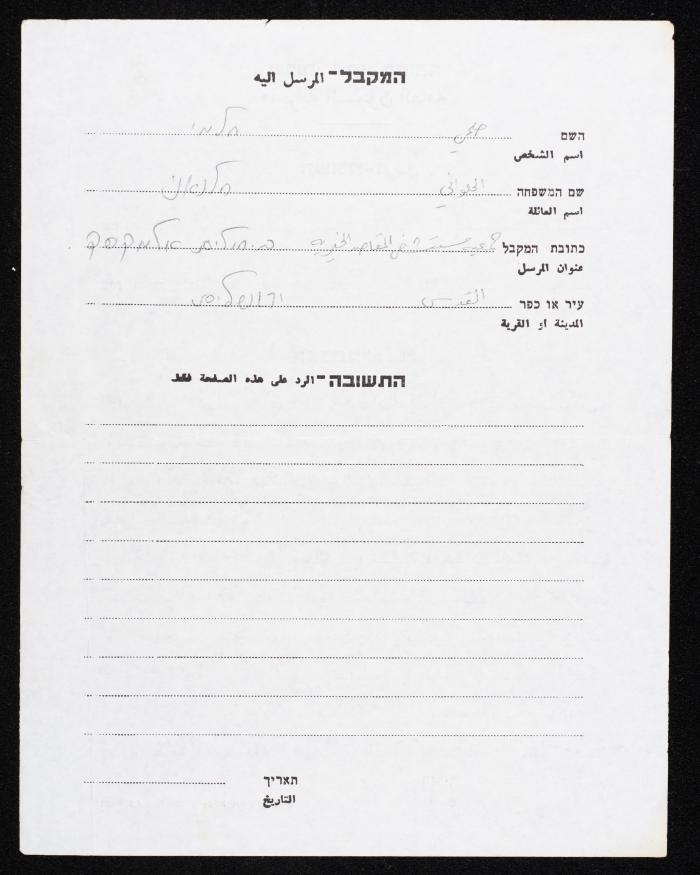 המקבל - المرسل اليه
השם حلمي חלמי
اسم الشخص
שם המשפחה الحلواني חלואני
اسم العائلة
כתובת המקבל جمعية مستشفى المقاصد الخيرية
عنوان المرسل
עיר או כפר القدس ירושלים
المدينة او القرية
התשובה - الرد على هذه الصلحة فقط
תאריך
التاريخ